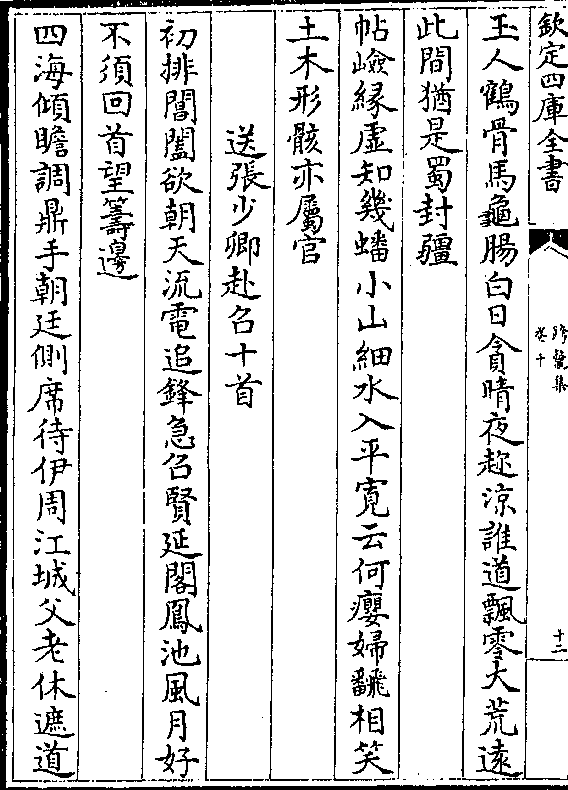 欽定四庫全書
卷十
十二
玉人鶴骨馬龜腸白日貪晴夜趂涼誰道飄零大荒逺
此間猶是蜀封疆
帖嶮縁虚知幾蟠小山細水入平寛云何癭婦飜相笑
土木形骸亦屬官
送張少卿赴召十首
初排閶闔欲朝天流電追鋒急召賢延閣鳳池風月好
不須回首望籌邊
四海傾瞻調鼎手朝廷側席待伊周江城父老休遮道